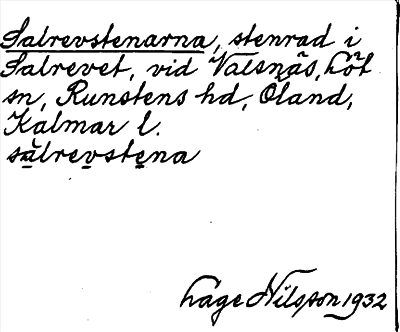 Salrevstenarna, stenrad i
Salrevet, vid Valsnäs, Löt
sn, Runstens hd, Öland,
Kalmar l.
sälrevstena
Håge Nilsson 1932